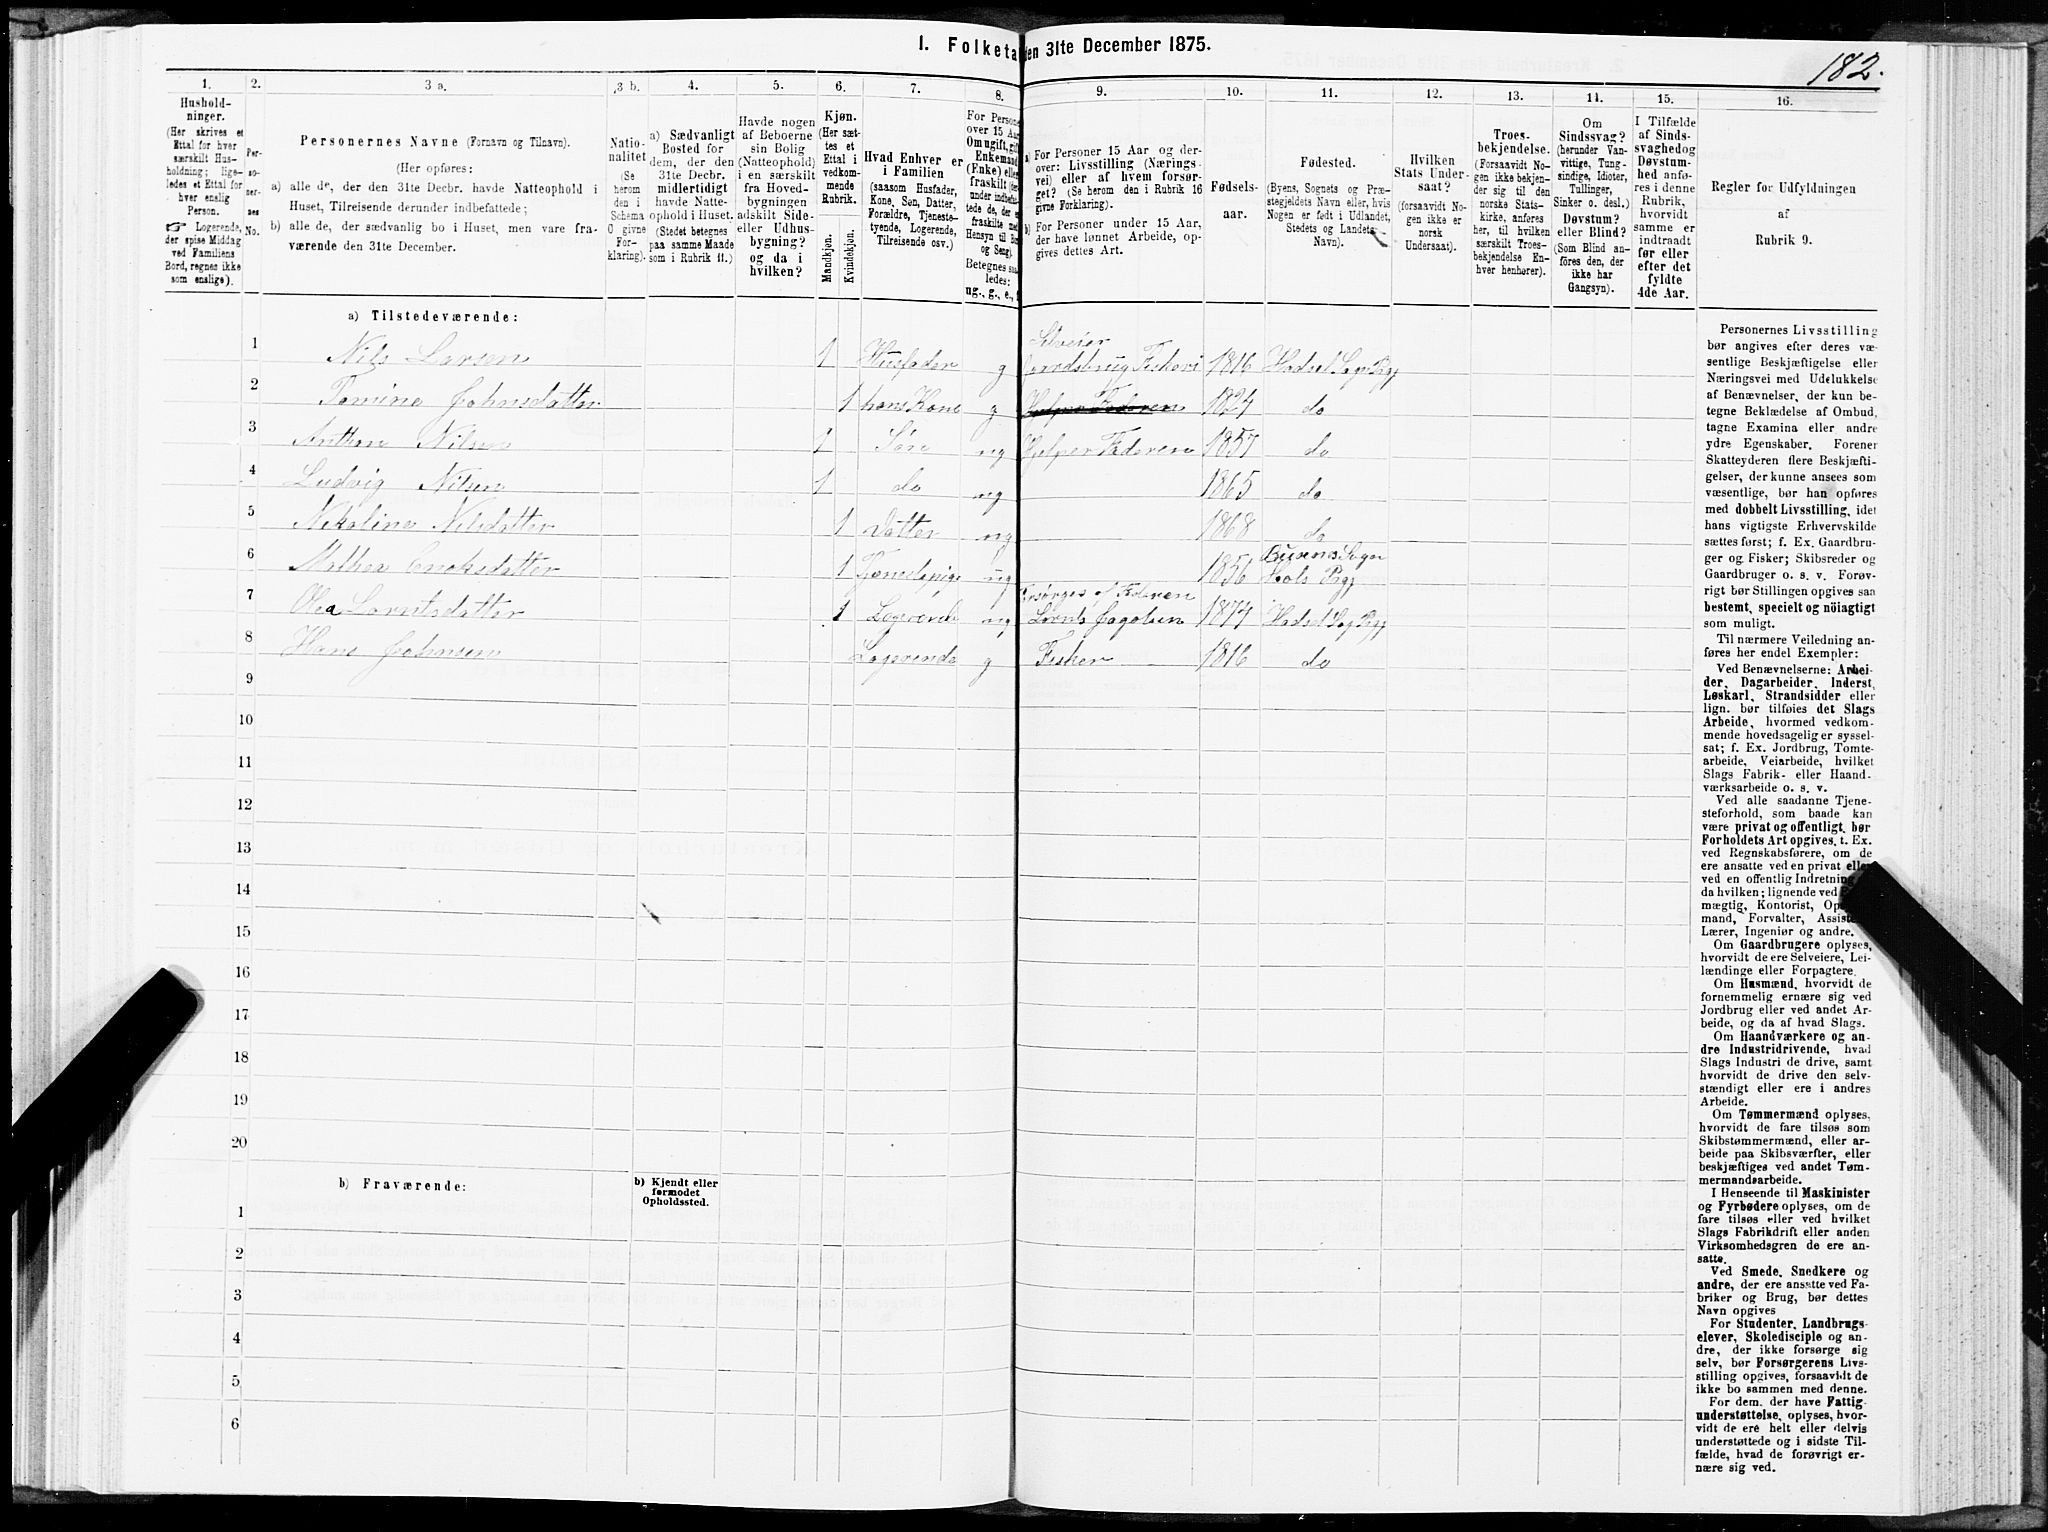 I. Folketa
den 31te December 1875.
182.
1.
Hushold-
ninger.
(Her skrives et
Ettal for hver
særskilt Hus-
holdning; lige-
ledes et Ettal for
hver enslig
Person.
Logerende,
der spise Middag
ved Familiens
Bord, regnes ikke
som enslige).
2.
Per-
so-
ner-
nes
No.
3 a.
Personernes Navne (Fornavn og Tilnavn).
(Her opføres:
a) alle de, der den 31te Decbr. havde Natteophold i
Huset, Tilreisende derunder indbefattede;
b) alle de, der sædvanlig bo i Huset, men vare fra-
værende den 31te December.
3 b.
Natio-
nalitet
(Se
herom
den i
Schema
O givne
For-
klaring).
4.
a) Sædvanligt
Bosted for
dem, der den
31te Decbr.
midlertidigt
havde Natte-
ophold i Huset.
(Stedet betegnes
paa samme Maade
som i Rubrik 11.)
5.
Havde nogen
af Beboerne
sin Bolig
(Natteophold)
i en særskilt
fra Hoved-
bygningen
adskilt Side-
eller Udhus-
bygning?
og da i
hvilken?
6.
Kjøn.
(Her sæt-
tes et
Ettal i
vedkom-
mende
Rubrik.
Mandkjøn.
Kvindekjøn.
7.
Hvad Enhver er
i Familien
(saasom Husfader,
Kone, Søn, Datter,
Forældre, Tjeneste-
tyende, Logerende,
Tilreisende osv.)
8.
For Persone
over 15 Aar
Om ugift, gift
Enkemand
(Enke) eller
fraskilt (der
under indbefat-
tede de, der e
fraskilte med
Hensyn til Bo
og Seng).
Betegnes saa-
ledes:
ug., g., e.,
9.
a) For Personer 15 Aar og der-
over: Livsstilling (Nærings-
vei) eller af hvem forsør-
get? (Se herom den i Rubrik 16
givne Forklaring).
b) For Personer under 15 Aar,
der have lønnet Arbeide, op-
gives dettes Art.
10.
Fødsels-
aar.
11.
Fødested.
(Byens, Sognets og Præ-
stegjeldets Navn eller, hvis
Nogen er født i Udlandet,
Stedets og Landets
Navn).
12.
Hvilken
Stats Under-
saat?
(forsaavidt No-
gen ikke er
norsk
Undersaat).
13.
Troes-
bekjendelse.
(Forsaavidt No-
gen ikke bekjen-
der sig til den
norske Stats-
kirke, anføres
her, til hvilken
særskilt Troes-
bekjendelse En-
hver henhører).
14.
Om
Sindssvag?
(herunder Van-
vittige, Tung-
sindige, Idioter,
Tullinger,
Sinker o. desl.)
Døvstum?
eller Blind?
(Som Blind an-
føres den, der
ikke har
Gangsyn).
15.
I Tilfælde
af Sinds-
svaghed og
Døvstum-
hed anfø-
res i denne
Rubrik,
hvorvidt
samme er
indtraadt
før eller
efter det
fyldte
4de Aar.
16.
Regler for Udfyldningen
af
Rubrik 9.
a) Tilstedeværende:
1 Nils Larsen 1 Husfader g Selveier Gaardsbrug Fiskeri 1816 Hadsel Sog Pgj
2 Tomine Johnsdatter 1 hans Kone g Hjelper Faderen 1824 do
3 Anthon Nilsen 1 Søn ug Hjelper Faderen 1857 do
4 Ludvig Nilsen 1 do ug 1865 do
5 Nikoline Nilsdatter 1 Datter ug 1868 do
6 Mathea Enoksdatter 1 Tjenestepige ug 1856 Sogn Hols Pgj
7 Olea Lorntsdatter 1 Logerende ug Forsørges af Faderen Lornts Jagobsen 1874 Hadsel Sog Pgj
8 Hans Johnsen Logerende g Fisker 1816 do
9
10
11
12
13
14
15
16
17
18
19
20
b) Fraværende:
b) Kjendt eller
formodet
Opholdssted.
1
2
3
4
5
6
Personernes Livsstilling
bør angives efter deres væ-
sentlige Beskjæftigelse eller
Næringsvei med Udelukkelse
af Benævnelser, der kun be-
tegne Beklædelse af Ombud,
tagne Examina eller andre
ydre Egenskaber. Forener
Skatteyderen flere Beskjæfti-
gelser, der kunne ansees som
væsentlige, bør han opføres
med dobbelt Livsstilling, idet
hans vigtigste Erhvervskilde
sættes først; f. Ex. Gaardbru-
ger og Fisker; Skibsreder og
Gaardbruger o. s. v. Forøv-
rigt bør Stillingen opgives saa
bestemt, specielt og nöiagtigt
som muligt.
Til nærmere Veiledning an-
føres her endel Exempler:
Ved Benævnelserne: Arbei-
der, Dagarbeider, Inderst,
Løskarl, Strandsidder eller
lign. bør tilføies det Slags
Arbeide, hvormed vedkom-
mende hovedsagelig er syssel-
sat; f. Ex. Jordbrug, Tomte-
arbeide, Veiarbeide, hvilket
Slags Fabrik- eller Haand-
værksarbeide o. s. v.
Ved alle saadanne Tjene-
steforhold, som baade kan
være privat og offentligt, bør
Forholdets Art opgives, t. Ex.
ved Regnskabsførere, om de
ere ansatte ved en privat eller
ved en offentlig Indretning
da hvilken; lignende ved
mægtig, Kontorist, Op
mand, Forvalter, Assist
Lærer, Ingeniør og andre.
Om Gaardbrugere oplyses,
hvorvidt de ere Selveiere, Lei-
lændinge eller Forpagtere.
Om Husmænd, hvorvidt de
fornemmelig ernære sig ved
Jordbrug eller ved andet Ar-
beide, og da af hvad Slags.
Om Haandværkere og an-
dre Industridrivende, hvad
Slags Industri de drive, samt
hvorvidt de drive den selv-
stændigt eller ere i andres
Arbeide.
Om Tømmermænd oplyses,
hvorvidt de fare tilsøs som
Skibstømmermænd, eller ar-
beide paa Skibsværfter, eller
beskjæftiges ved andet Tøm-
mermandsarbeide.
I Henseende til Maskinister
og Fyrbødere oplyses, om de
fare tilsøs eller ved hvilket
Slags Fabrikdrift eller anden
Virksomhedsgren de ere an-
satte.
Ved Smede, Snedkere og
andre, der ere ansatte ved Fa-
briker og Brug, bør dettes
Navn opgives
For Studenter, Landbrugs-
elever, Skoledisciple og an-
dre, der ikke forsørge sig
selv, bør Forsørgerens Livs-
stilling opgives, forsaavidt de
ikke bo sammen med denne.
For dem, der have Fattig-
understøttelse, oplyses, hvor-
vidt de ere helt eller delvis
understøttede og i sidste Til-
fælde, hvad de forøvrigt er-
nære sig ved.